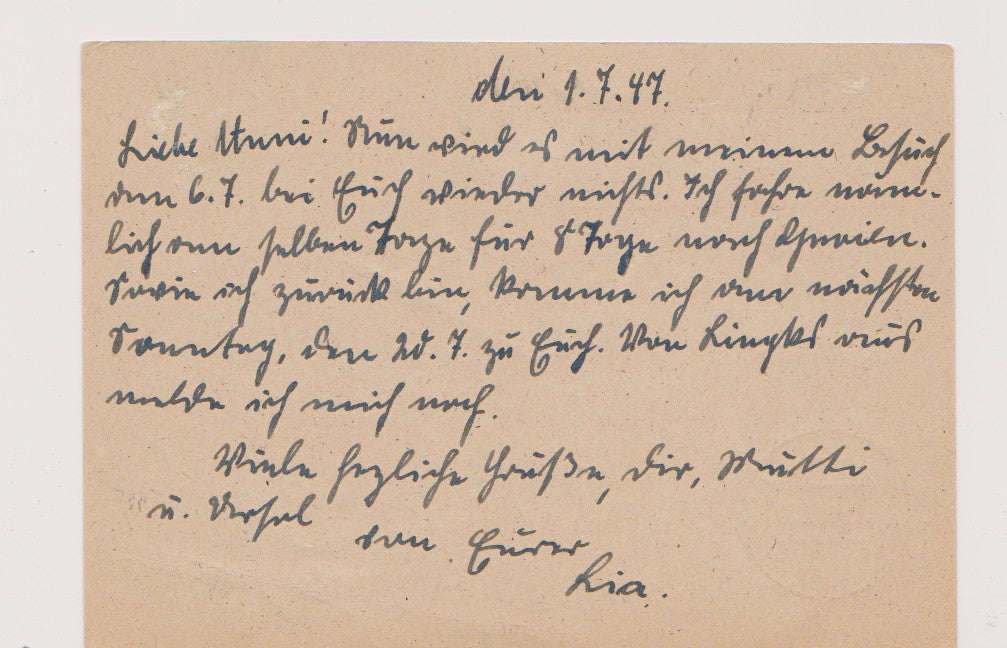 den 1.7.47.
Liebe Anni! Nun wird es mit meinem Besuch
am 6.7. bei Euch wieder nichts. Ich fahre näm-
lich am selben Tage für 8 Tage nach
Sowie ich zurück bin, komme ich am nächsten
Sonntag, den 20.7. zu Euch. Von aus
melde ich mich noch.
Viele herzliche Grüße, Dir, Mutti
u. Ursel
von Eurer
Lia.